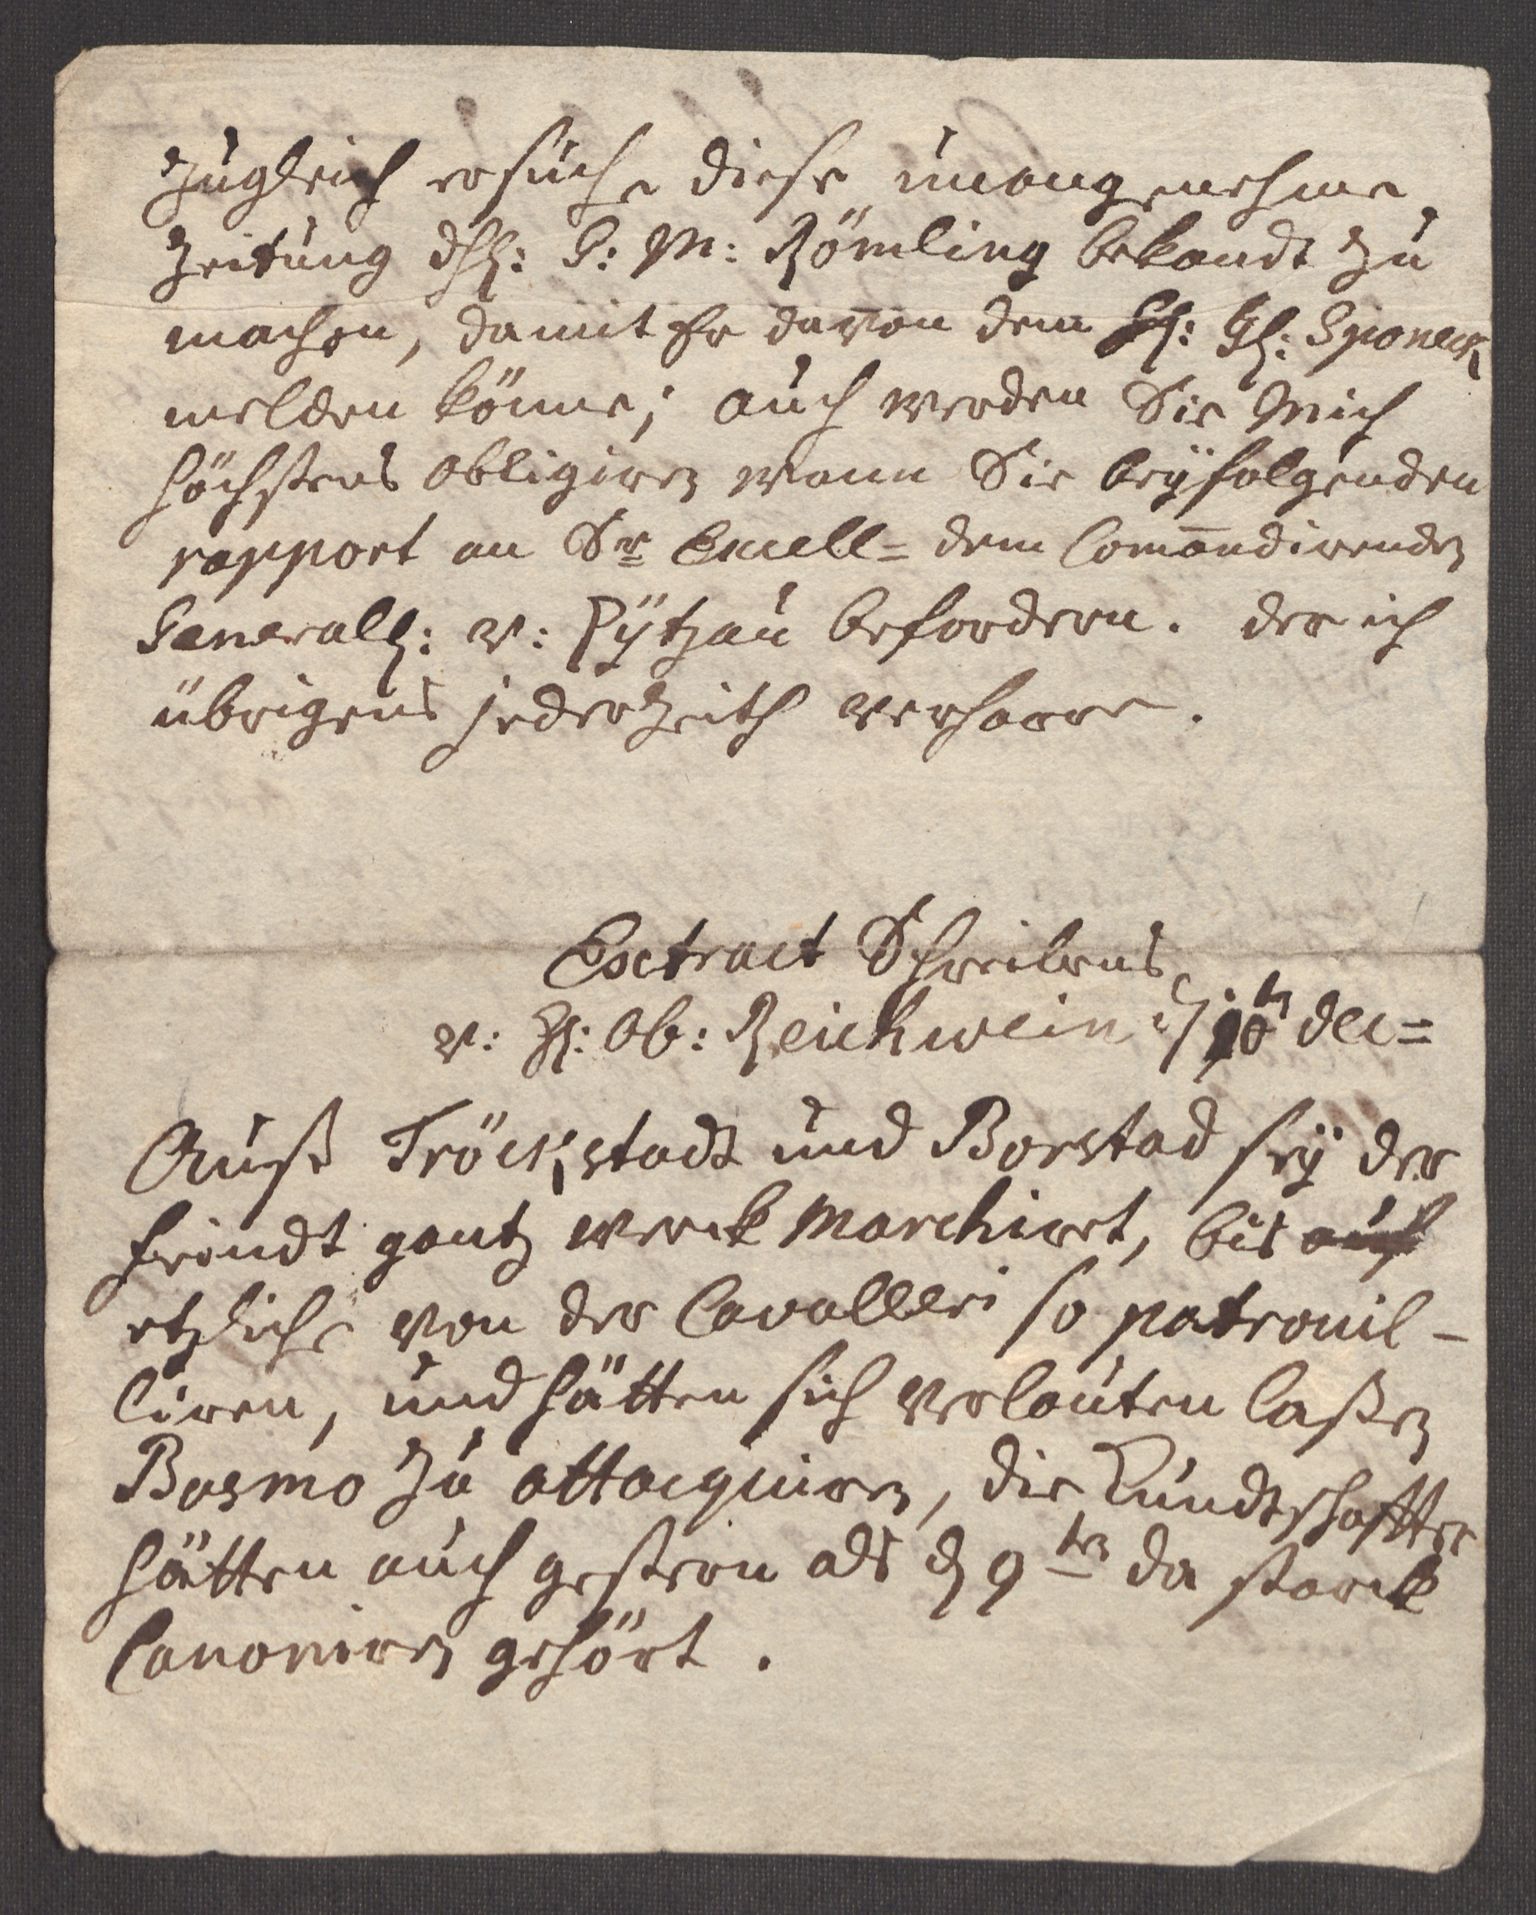 Zugleich ersuche diese unangenehme
Zeitung dHl: G: M: Römling bekandt zu
machen, damit Er davon dem Hl: Gl: Sponeck
melden könne; auch werden Sie Mich
höchstens obligiren wann Sie beÿfolgenden
rapport an Sr Excell= dem Com̄andirenden
Generall: v: Lÿtzau befordern. der ich
übrigens jederzeith verharre.
Extract Schreibens
v: Hl: Ob: Reickwein 10ten dec=
Auß Tröckstadt und Borstad seÿ der
feindt gantz weck marchiret, bis auf
etzliche von der Cavalleri so patrouil-
liren, und hätten sich verlauten laßen
Basmo zu attacquiren, die Kundtschaffter
hätten auch gestern als d 9ten da starck
Canoniren gehört.